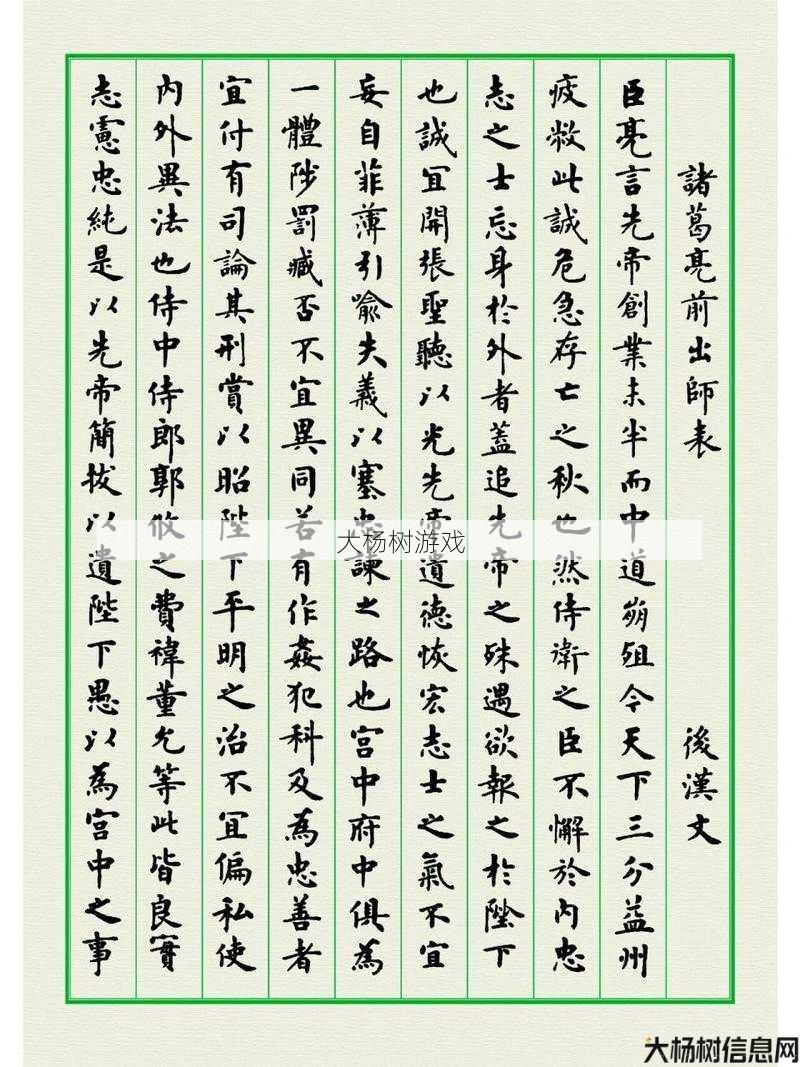 諸葛亮前出師表 後漢文
臣亮言先帝創業未半而中道崩殂今天下三分益州
疲敝此誠危急存亡之秋也然侍衛之臣不懈於內忠
志之士忘身於外者蓋追先帝之殊遇欲報之於陛下
也誠宜開張聖聽以光先帝遺德恢宏志士之氣不宜
妄自菲薄引喻失義以塞忠諫之路也宮中府中俱為
一體陟罰臧否不宜異同若有作姦犯科及為忠善者
宜付有司論其刑賞以昭陛下平明之治不宜偏私使
內外異法也侍中侍郎郭攸之費禕董允等此皆良實
志慮忠純是以先帝簡拔以遺陛下愚以為宮中之事
大杨树游戏
大杨树信息网